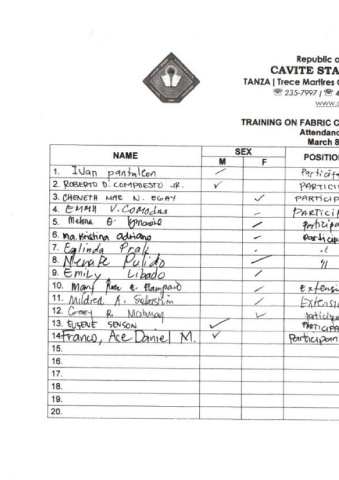 Republic o
CAVITE STA
TANZA | Trece Martires C
☏ 235-7997 | ☏ 4
www.c
TRAINING ON FABRIC C
Attendanc
March 8
NAME SEX POSITIO
M F
1. Ivan pantaleon ✓ Particip
2. ROBERTO D. COMPUESTO JR. ✓ PARTICI
3. CHENETH MAE N. EGAY ✓ PARTICIP
4. EMMA V. Comodas PARTICIP
5. Melina G. Participa
6. Ma. Kristina adriano Particip
7. Eglinda
8. Pulido
9. Emily Libado
10. Mary Extensi
11. Mildred A. Sebastian Extensio
12. R. Participa
13. EUGENE SENSON PARTICIPA
14. Franco, Ace Daniel M. ✓ Participan
15.
16.
17.
18.
19.
20.